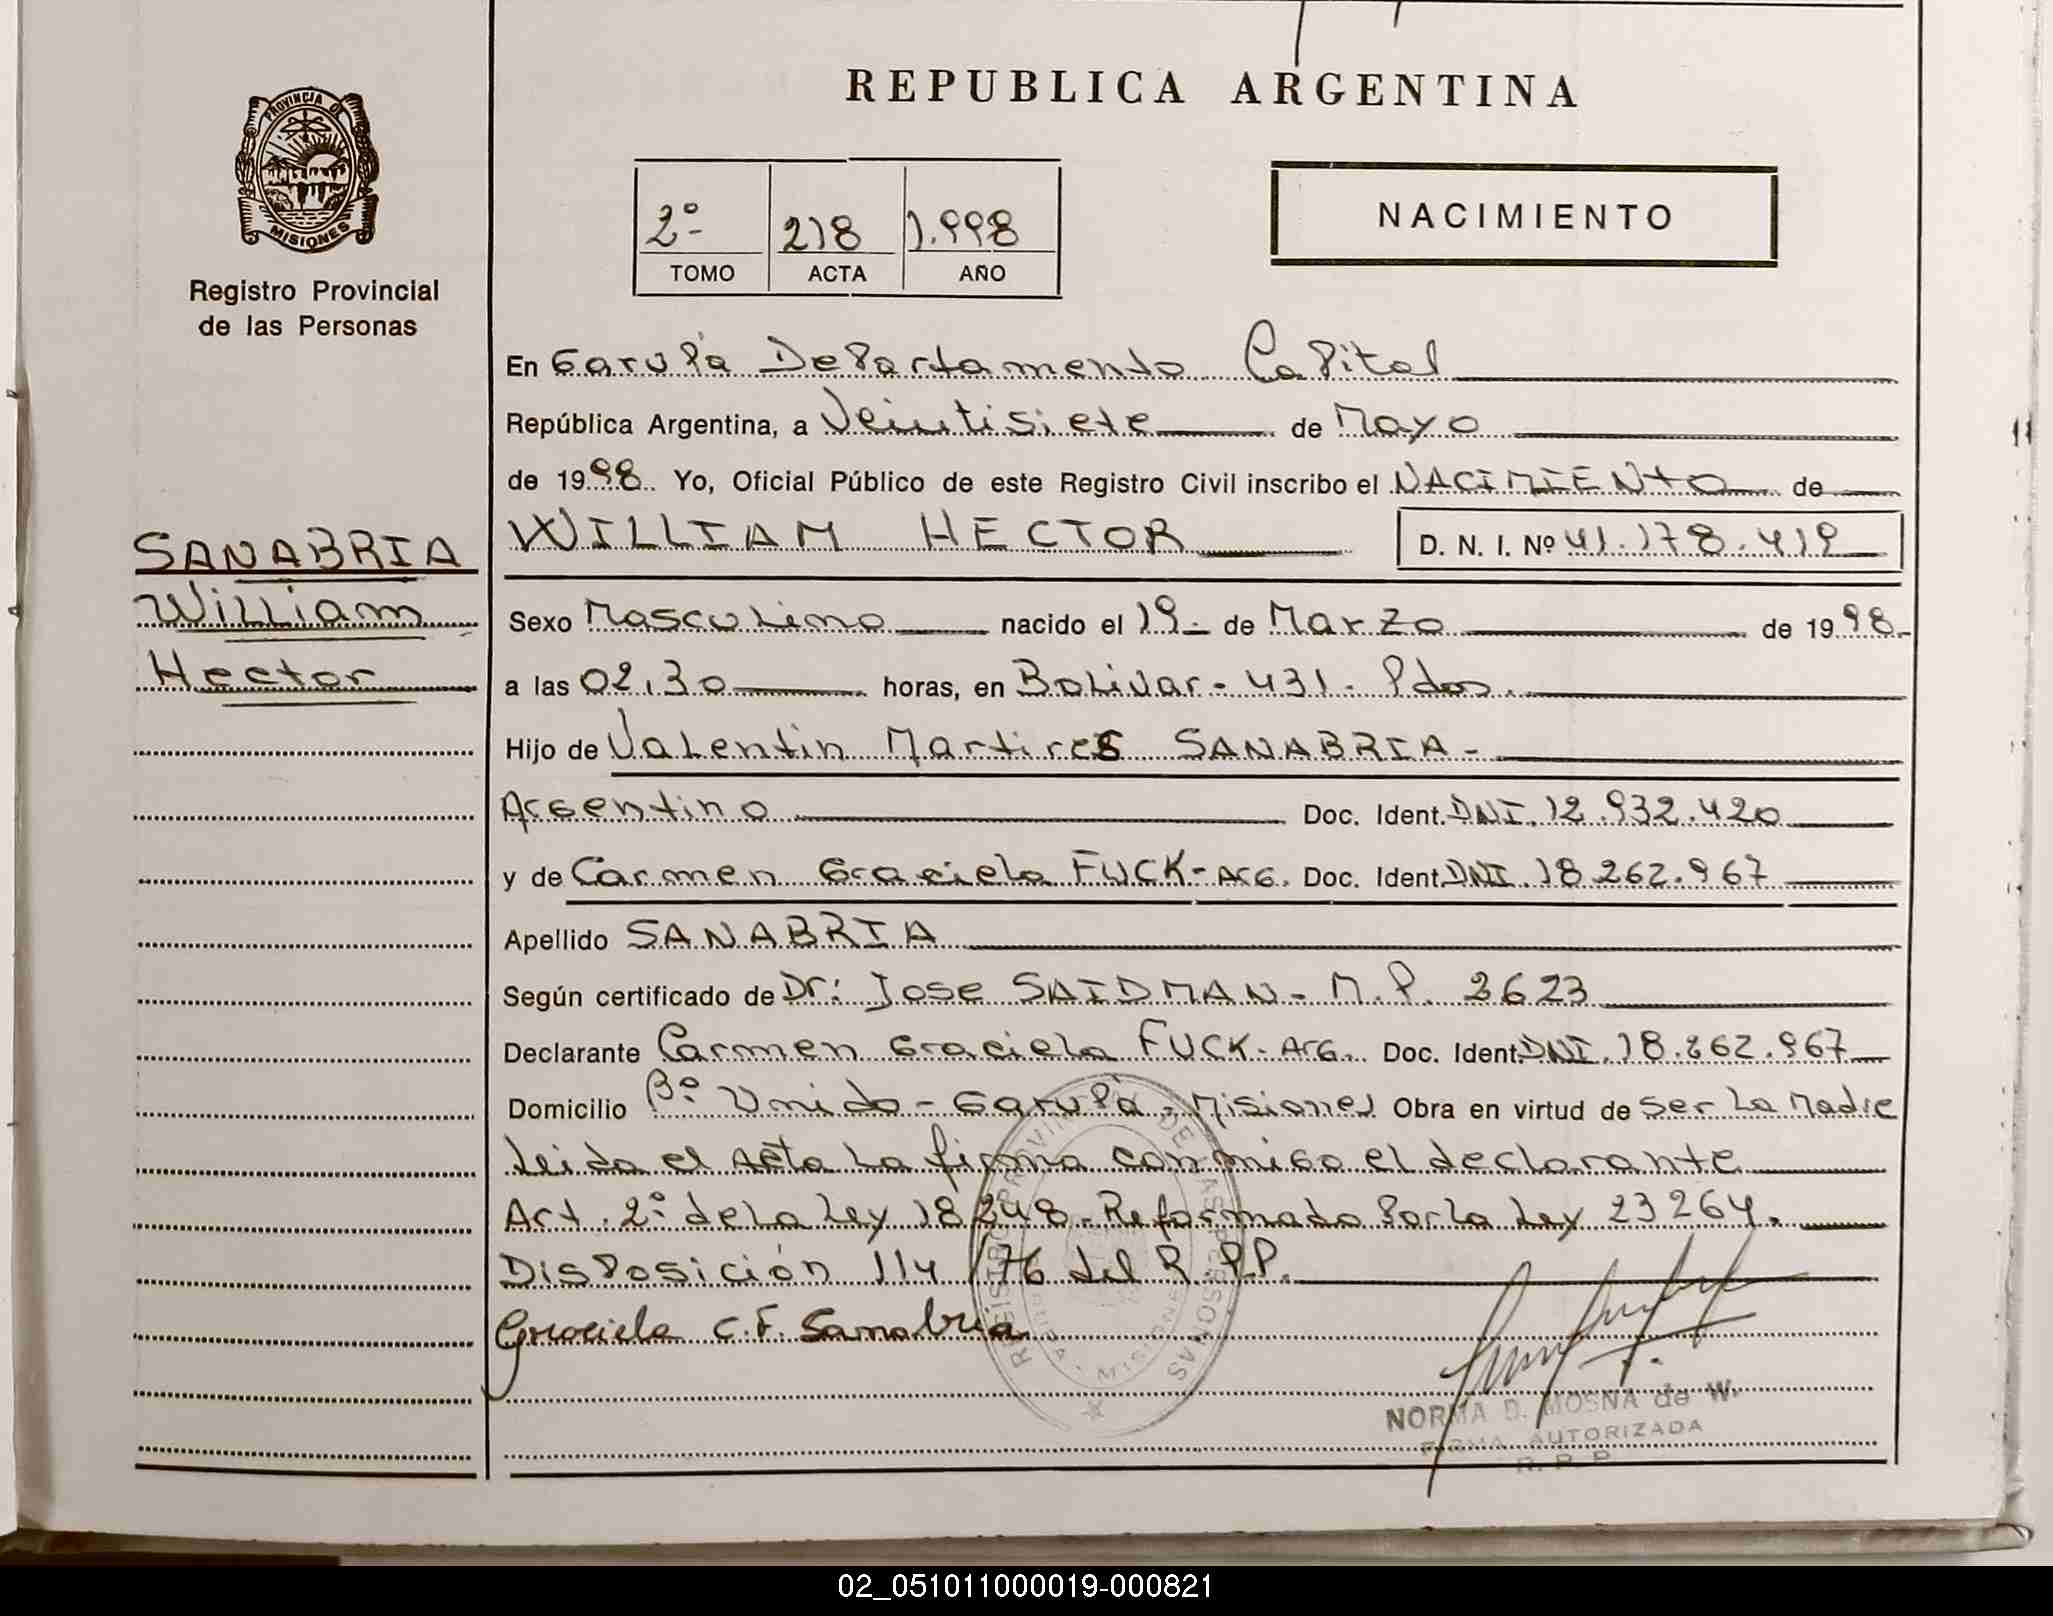 REPUBLICA ARGENTINA
PROVINCIA DE
MISIONES
Registro Provincial
de las Personas
2º 218 1.998
TOMO ACTA AÑO
NACIMIENTO
En Garupá Departamento Capital
República Argentina, a Veintisiete de Mayo
de 1998 Yo, Oficial Público de este Registro Civil inscribo el NACIMIENTO de
WILLIAM HECTOR D. N. I. Nº 41.178.419
SANABRIA
William
Hector
Sexo Masculino nacido el 19 de Marzo de 1998
a las 02,30 horas, en Bolivar - 431 - Pdas.
Hijo de Valentin Martires SANABRIA -
Argentino Doc. Ident. DNI. 12.932.420
y de Carmen Graciela FUCK - ARG. Doc. Ident. DNI. 18.262.967
Apellido SANABRIA
Según certificado de Dr: Jose SAIDMAN - M.P. 2623
Declarante Carmen Graciela FUCK - ARG. Doc. Ident. DNI. 18.262.967
Domicilio Bº Unido - Garupá - Misiones Obra en virtud de Ser La Madre
Leida el Acta La firma conmigo el declarante
Art. 2º de la Ley 18248 - Reformado Por la Ley 23264.
Disposición 114/76 del R.P.P.
Graciela C.F. Sanabria
REGISTRO PROVINCIAL DE LAS PERSONAS
MISIONES
NORMA D. MOSNA de W.
FIRMA AUTORIZADA
R. P. P.
02_051011000019-000821